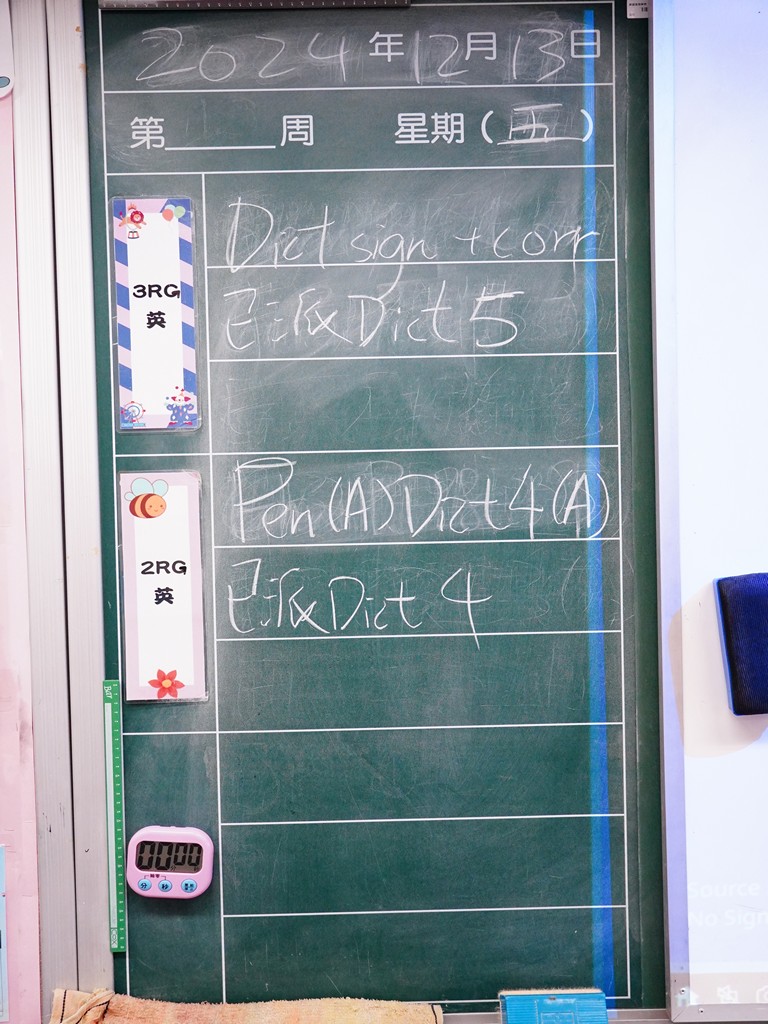 2024年12月13日
第____周 星期(五)
3RG
英
Dict sign + corr
已派Dict 5
2RG
英
Pen(A) Dict 4(A)
已派Dict 4
00 00
分 秒
Source
No Sign